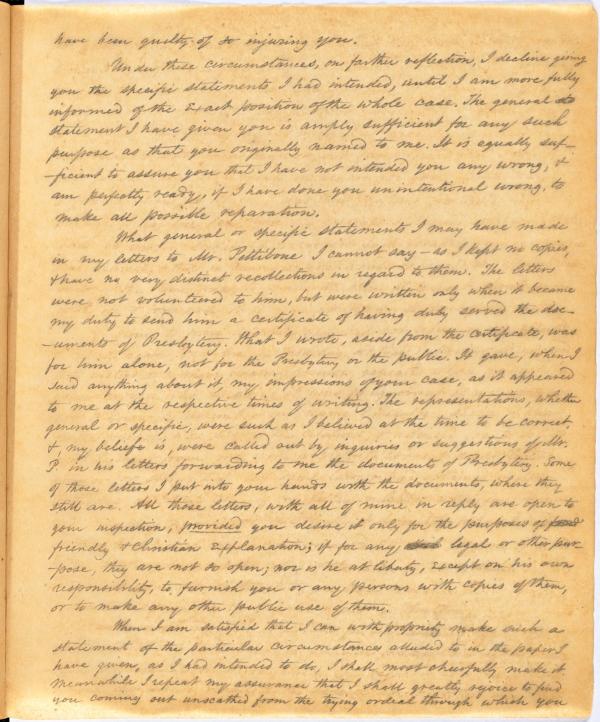 have been guilty of so injuring you.
Under these circumstances, on farther reflection, I decline giving
you the specific statements I had intended, until I am more fully
informed of the exact position of the whole case. The general
statement I have given you is amply sufficient for any such
purpose as that you originally named to me. It is equally suf-
-ficient to assure you that I have not intended you any wrong, &
am perfectly ready, if I have done you unintentional wrong, to
make all possible reparation.
What general or specific statements I may have made
in my letters to Mr. Pettibone I cannot say - as I kept no copies,
& have no very distinct recollections in regard to them. The letters
were not volunteered to him, but were written only when it became
my duty to send him a certificate of having duly served the doc-
-uments of Presbytery. What I wrote, aside from the certificate, was
for him alone, not for the Presbytery or the public. It gave, when I
said anything about it, my impressions of your case, as it appeared
to me at the respective times of writing. The representations, whether
general or specific, were such as I believed at the time to be correct,
&, my belief is, were called out by inquiries or suggestions of Mr.
P. in his letters forwarding to me the documents of Presbytery. Some
of those letters I put into your hands with the documents, where they
still are. All those letters, with all of mine in reply are open to
your inspection, provided you desire it only for the purposes of
friendly & Christian explanation; if for any legal or other pur-
-pose, they are not so open; nor is he at liberty, except on his own
responsibility, to furnish you or any persons with copies of them,
or to make any other public use of them.
When I am satisfied that I can with propriety make such a
statement of the particular circumstances alluded to in the paper I
have given, as I had intended to do, I shall most cheerfully make it
meanwhile I repeat my assurance that I shall greatly rejoice to find
you coming out unscathed from the trying ordeal through which you